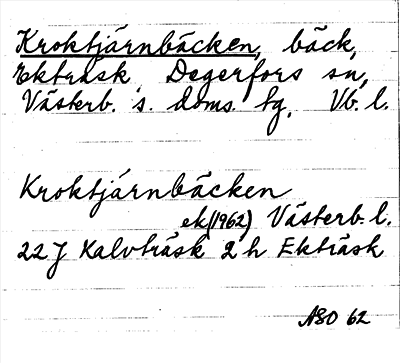 Kroktjärnbäcken, bäck,
Ekträsk, Degerfors sn,
Västerb. s. doms. tg, Vb. l.
Kroktjärnbäcken
ek(1962) Västerb. l.
22 J Kalvträsk 2 h Ekträsk
ASO 62